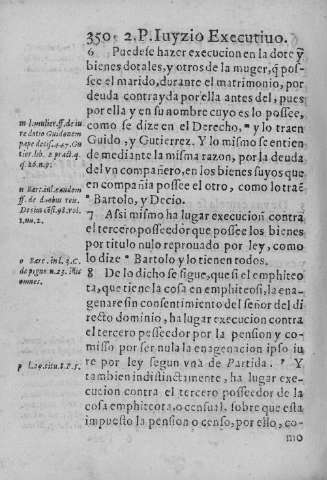 350 2. P. Iuyzio Executiuo.
6 Puedese hazer execucion en la dote y
bienes dotales, y otros de la muger, q̃ pos-
see el marido, durante el matrimonio, por
deuda contrayda por ella antes del, pues
por ella y en su nombre cuyo es lo possee,
como se dize en el Derecho, m y lo traen
Guido, y Gutierrez. Y lo mismo se entien
de mediante la misma razon, por la deuda
del vn compañero, en los bienes suyos que
en compañia possee el otro, como lo traẽ
n Bartolo, y Decio.
7 Assi mismo ha lugar execucion contra
el tercero posseedor que possee los bienes
por titulo nulo reprouado por ley, como
lo dize o Bartolo y lo tienen todos.
8 De lo dicho se sigue, que si el emphiteo
ta, que tiene la cosa en emphiteosi, la ena-
genare sin consentimiento del señor del di
recto dominio, ha lugar execucion contra
el tercero posseedor por la pension y co-
misso por ser nula la enagenacion ipso iu
re por ley segun vna de Partida. p Y
tambien indistinctamente, ha lugar exe-
cucion contra el tercero posseedor de la
cosa emphiteota, o censual, sobre que esta
impuesto la pension o censo, por ello, co-
mo
m l. mulier. ff. de iu
re dotiu Guidonem
pape decis. 447. Gu
tier. lib. 2 pract. q.
q. 26. n. 9.
n Bart. in l. eandem
ff. de duobus reu.
Decius cõsi. 98. vol.
1. nu. 2.
o Bart. in l. 3. C.
de pigno n. 23. &ic
omnes.
p l. 29. titu. 8. P. 5.